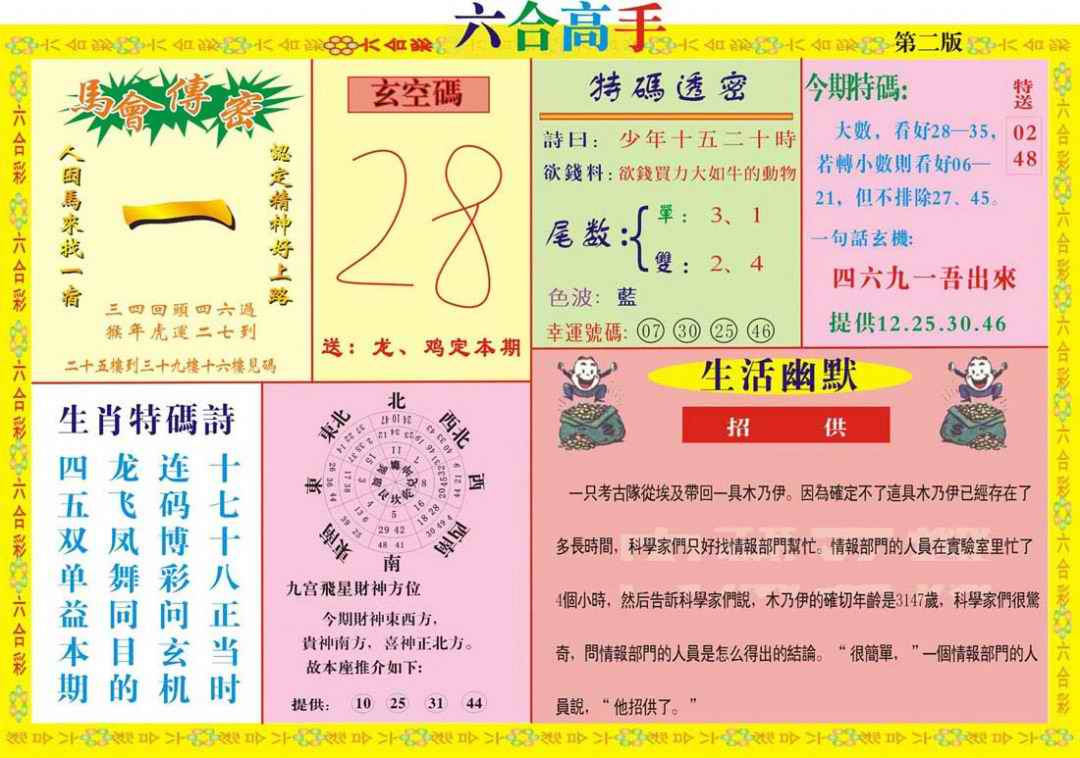 六合高手
第二版
馬會傳密
人因馬來找一宿
一
認定精神好上路
三四回頭四六過
猴年虎運二七到
二十五樓到三十九樓十六樓見碼
玄空碼
28
送：龙、鸡定本期
特碼透密
詩曰：少年十五二十時
欲錢料：欲錢買力大如牛的動物
尾数：
單：3、1
雙：2、4
色波：藍
幸運號碼：07 30 25 46
今期特碼:
特送
02
48
大數，看好28—35，
若轉小數則看好06—
21，但不排除27、45。
一句話玄機:
四六九一吾出來
提供12.25.30.46
生肖特碼詩
四龙连十
五飞码七
双凤博十
单舞彩八
益同问正
本目玄当
期的机时
北
西北
西
西南
南
東南
東
東北
九宫飛星財神方位
今期財神東西方，
貴神南方，喜神正北方。
故本座推介如下:
提供: 10 25 31 44
生活幽默
招供
一只考古隊從埃及帶回一具木乃伊。因為確定不了這具木乃伊已經存在了
多長時間，科學家們只好找情報部門幫忙。情報部門的人員在實驗室里忙了
4個小時，然后告訴科學家們說，木乃伊的確切年齡是3147歲，科學家們很驚
奇，問情報部門的人員是怎么得出的結論。“很簡單，”一個情報部門的人
員說，“他招供了。”